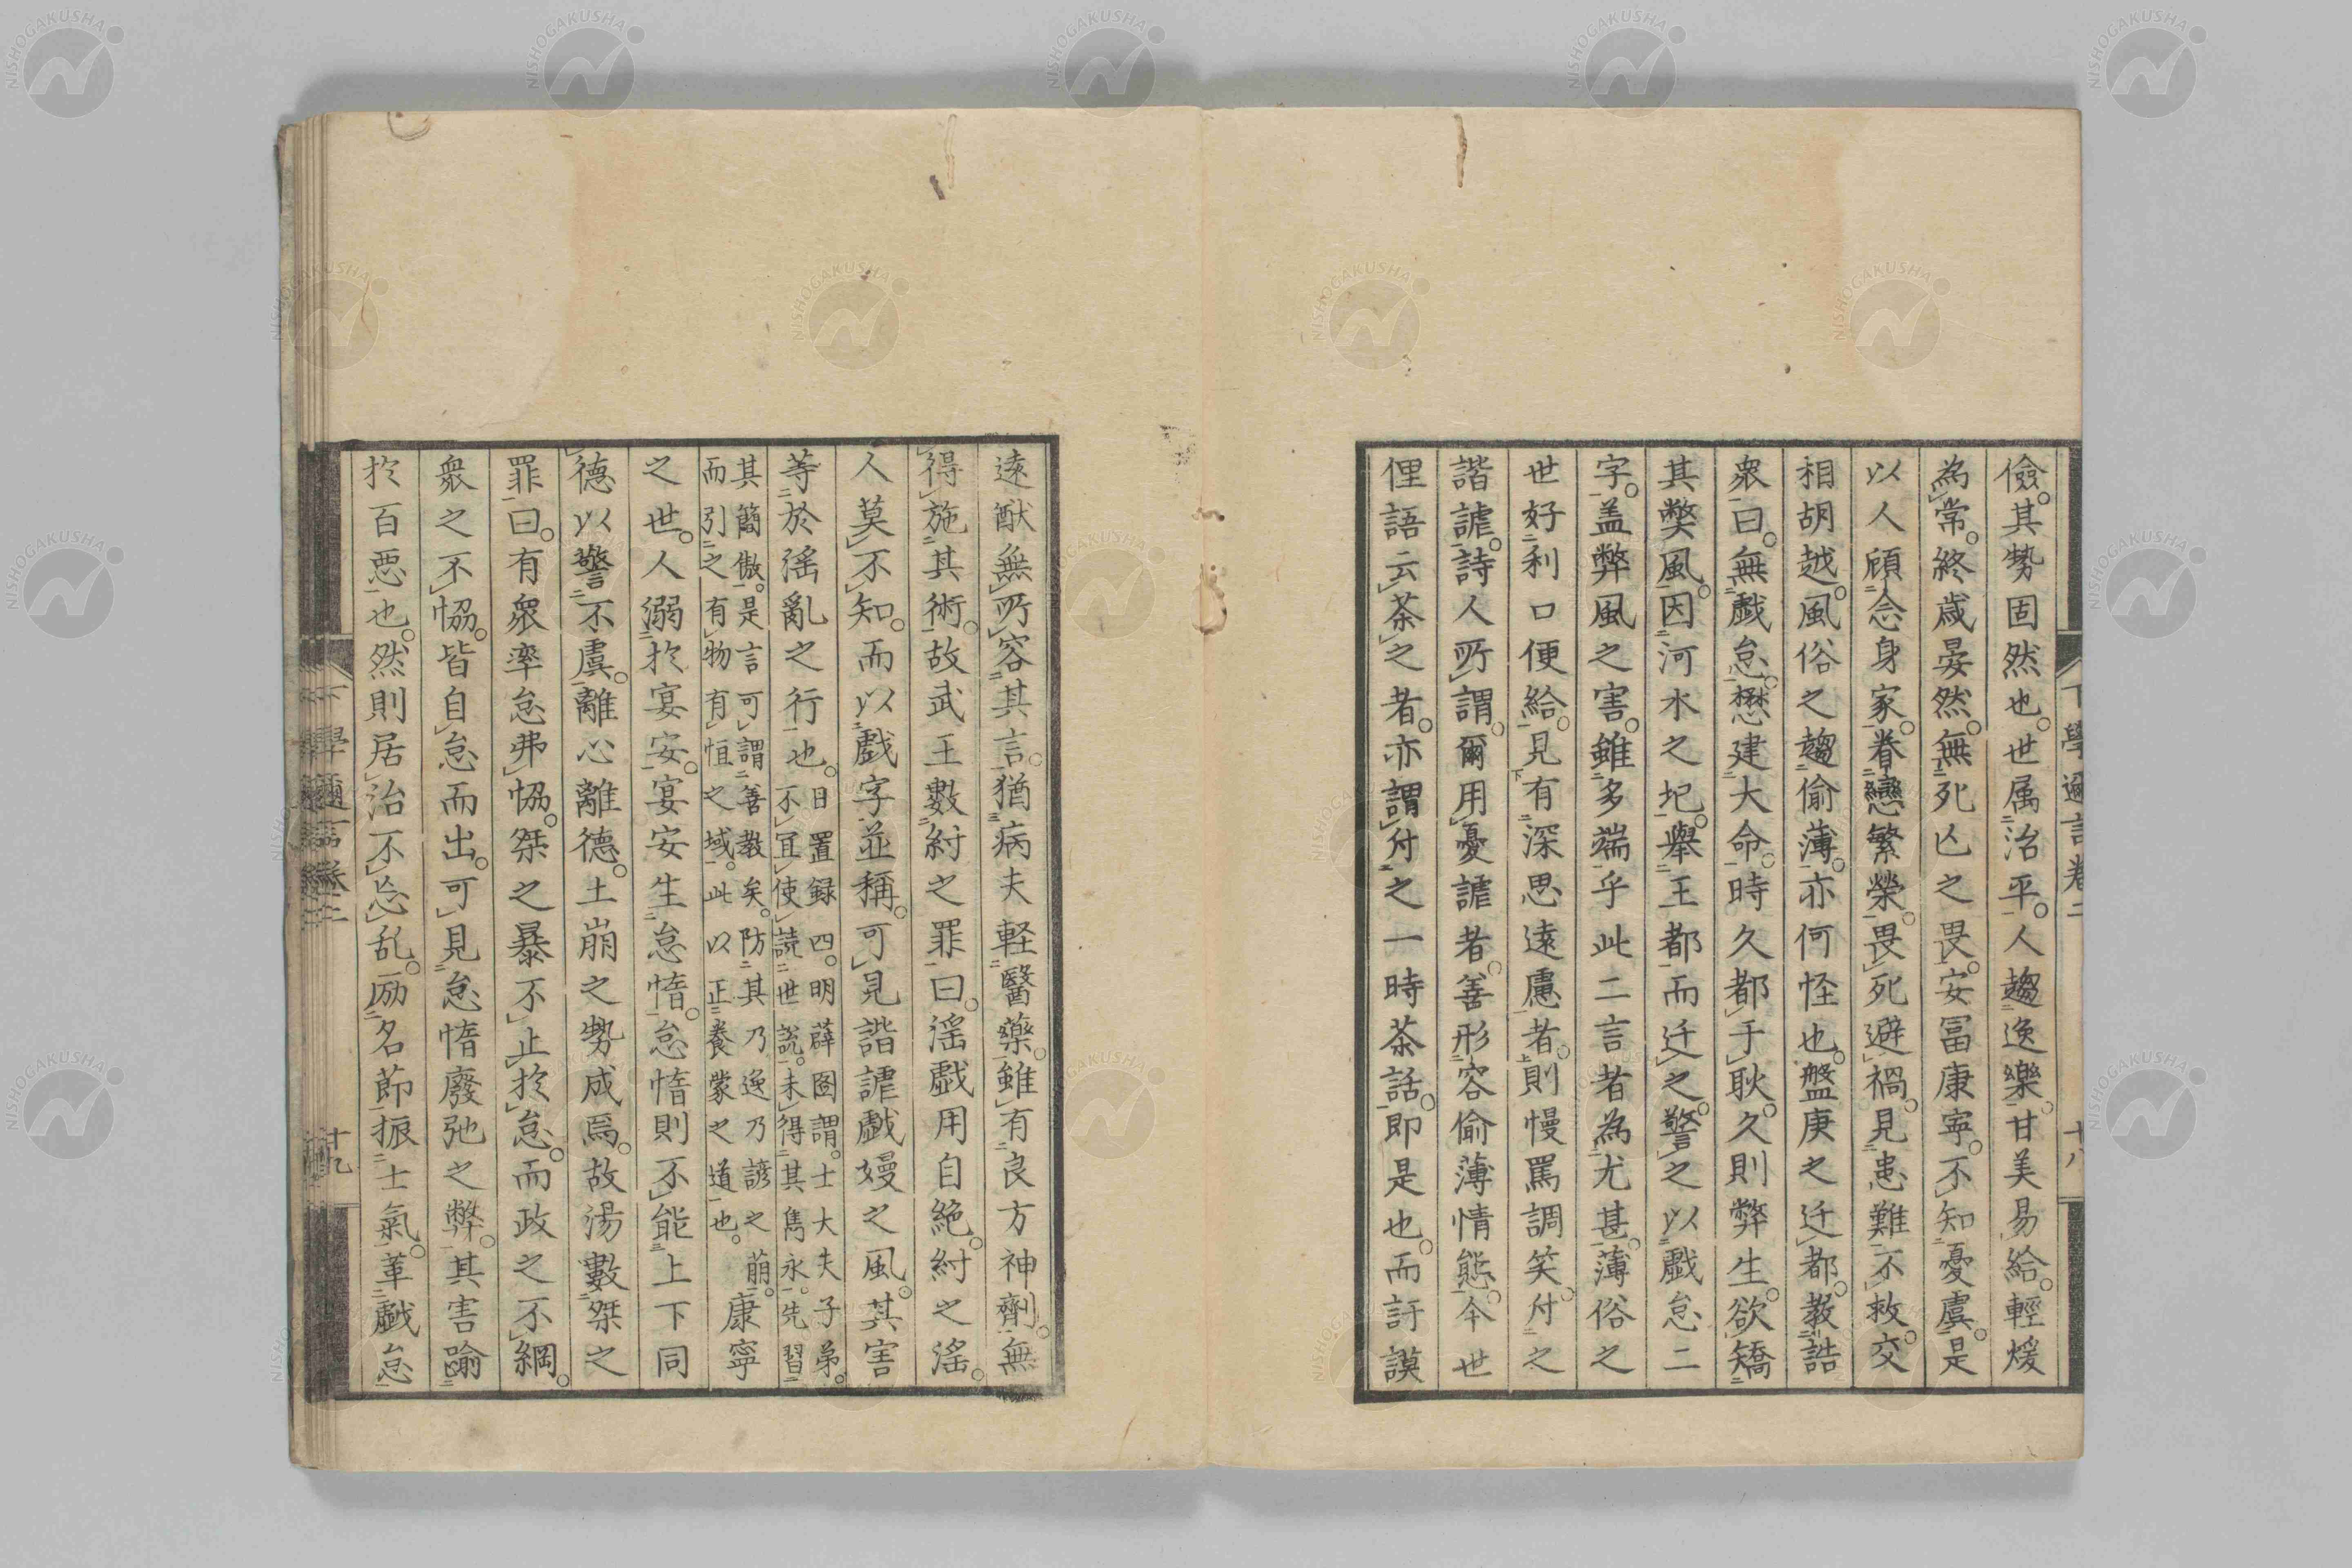 下學邇言卷二
十八
儉。其勢固然也。世属治平。人趨逸樂。甘美易給。輕煖
為常。終歳晏然。無死亾之畏。安冨康寧。不知憂虞。是
以人顧念身家。眷戀繁榮。畏死避禍。見患難不救。交
相胡越。風俗之趨偷薄。亦何怪也。盤庚之迁都。教誥
衆曰。無戯怠。懋建大命。時久都于耿。久則弊生。欲矯
其獘風。因河水之圮。舉王都而迁之。警之以戯怠二
字。盖弊風之害。雖多端乎此二言者為尤甚。薄俗之
世好利口便給。見有深思遠慮者。則慢罵調笑。付之
諧謔。詩人所謂。爾用憂謔者。善形容偷薄情態。今世
俚語云茶之者。亦謂付之一時茶話。即是也。而訏謨
遠猷無所容其言。猶病夫軽醫藥。雖有良方神劑。無
得施其術。故武王數紂之罪曰。滛戯用自絶。紂之滛。
人莫不知。而以戯字並稱。可見諧謔戯嫚之風。其害
等於滛亂之行也。日置録四。明薛圀謂。士大夫子弟。
不冝使読世説。未得其雋永。先習
其簡傲。是言可謂善教矣。防其乃逸乃諺之萠。
而引之有物有恒之域。此以正養蒙之道也。康寧
之世。人溺於宴安。宴安生怠惰。怠惰則不能上下同
德以警不虞。離心離德。土崩之勢成焉。故湯數桀之
罪曰。有衆率怠弗恊。桀之暴不止於怠。而政之不綱。
衆之不恊。皆自怠而出。可見怠惰廢弛之弊。其害踰
於百悪也。然則居治不忘乱。励名節振士氣。革戯怠
下學邇言卷二
十九